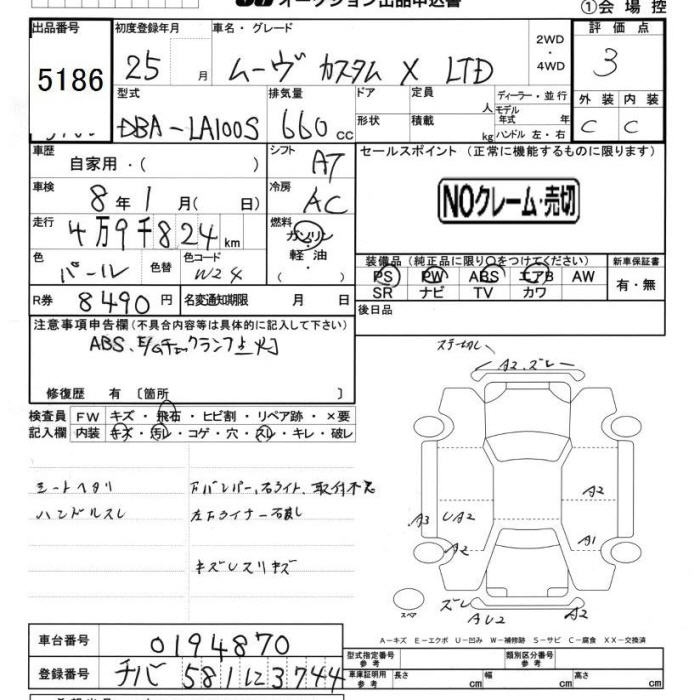 オークション出品申込書
①会場控
出品番号 初度登録年月 車名・グレード 2WD・4WD 評価点
5186 25 月 ムーヴ カスタム X LTD 3
型式 排気量 ドア 定員 人 ディーラー・並行 外装 内装
DBA-LA100S 660 cc 形状 積載 kg モデル年式 年 ハンドル 左・右 C C
車歴 自家用・( ) シフト AT セールスポイント (正常に機能するものに限ります)
車検 8年1月( 日) 冷房 AC NOクレーム・売切
走行 4万9千824km 燃料 ガソリン・軽油・( )
色 パール 色替 色コード W24 装備品 (純正品に限り○をつけてください) 新車保証書
PS PW ABS エアB AW 有・無
SR ナビ TV カワ
R券 8490円 名変通知期限 月 日 後日品
注意事項申告欄(不具合内容等は具体的に記入して下さい)
ABS、E/Gチェックランプ点灯
修復歴 有 [箇所 ]
検査員 FW キズ・飛石・ヒビ割・リペア跡・×要
記入欄 内装 キズ・汚レ・コゲ・穴・スレ・キレ・破レ
シートヘタリ
ハンドルスレ
Fバンパー、右ライト、取付不足
左Fライナー一部破し
キズレスリキズ
ステー切し
A2.ズレ
A2
A3 UA2
A2 A1
スペア
ズレ
AU2
A-キズ E-エクボ U-凹み W-補修跡 S-サビ C-腐食 XX-交換済
車台番号 0194870 型式指定番号 参考 類別区分番号 参考
登録番号 チバ 581 に 3744 車庫証明用 参考 長さ cm 幅 cm 高さ cm